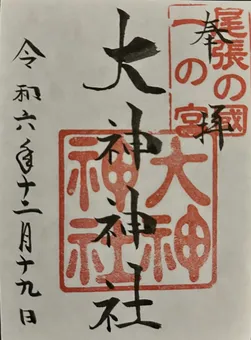 奉拝
尾張の國
一の宮
大神神社
大神
神社
令和六年十二月十九日